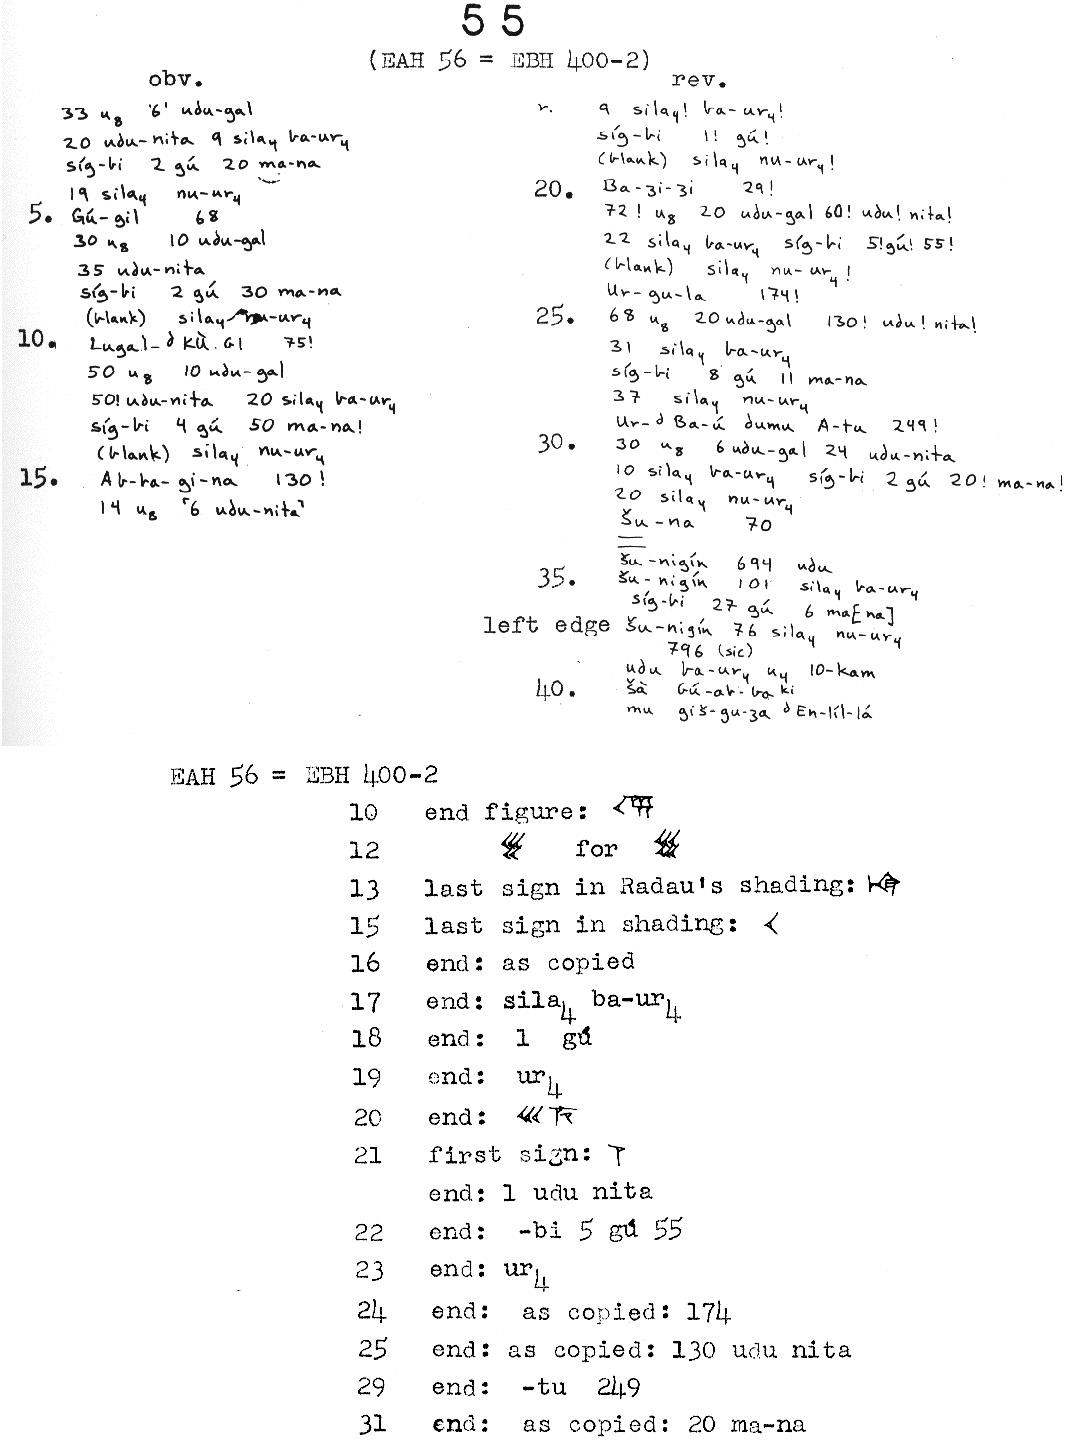 55
(EAH 56 = EBH 400-2)
obv.
33 u₈ '6' udu-gal
20 udu-nita 9 sila₄ ba-ur₄
síg-bi 2 gú 20 ma-na
19 sila₄ nu-ur₄
5. Gú-gil 68
30 u₈ 10 udu-gal
35 udu-nita
síg-bi 2 gú 30 ma-na
(blank) sila₄ nu-ur₄
10. Lugal-d KÙ.GI 75!
50 u₈ 10 udu-gal
50! udu-nita 20 sila₄ ba-ur₄
síg-bi 4 gú 50 ma-na!
(blank) sila₄ nu-ur₄
15. Ab-ba-gi-na 130!
14 u₈ ⌈6 udu-nita⌉
rev.
r. 9 sila₄! ba-ur₄!
síg-bi 1! gú!
(blank) sila₄ nu-ur₄!
20. Ba-zi-zi 29!
72! u₈ 20 udu-gal 60! udu! nita!
22 sila₄ ba-ur₄ síg-bi 5! gú! 55!
(blank) sila₄ nu-ur₄!
Ur-gu-la 174!
25. 68 u₈ 20 udu-gal 130! udu! nita!
31 sila₄ ba-ur₄
síg-bi 8 gú 11 ma-na
37 sila₄ nu-ur₄
Ur-d Ba-ú dumu A-tu 249!
30. 30 u₈ 6 udu-gal 24 udu-nita
10 sila₄ ba-ur₄ síg-bi 2 gú 20! ma-na!
20 sila₄ nu-ur₄
Šu-na 70
šu-nigín 694 udu
35. šu-nigín 101 sila₄ ba-ur₄
síg-bi 27 gú 6 ma[na]
left edge šu-nigín 76 sila₄ nu-ur₄
796 (sic)
udu ba-ur₄ u₄ 10-kam
40. šà Gú-ab-ba ki
mu giš-gu-za d En-líl-lá
EAH 56 = EBH 400-2
10 end figure:
12 for
13 last sign in Radau's shading:
15 last sign in shading: 𒌋
16 end: as copied
17 end: sila₄ ba-ur₄
18 end: 1 gú
19 end: ur₄
20 end:
21 first sign: 𒁹
end: 1 udu nita
22 end: -bi 5 gú 55
23 end: ur₄
24 end: as copied: 174
25 end: as copied: 130 udu nita
29 end: -tu 249
31 end: as copied: 20 ma-na